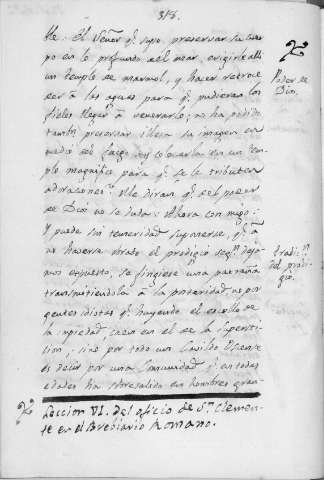 318.
te. El Señor q.e supo preservar su cuer
po en lo profundo del mar, erigirle alli
un temple de marmol, y hacer retroce
der à las aguas para q.e pudieran los
fieles llegar à venerarlo; no ha podido
tambn. preservar illesa su imagen en
medio del fuego, y colocarla en un tem
plo magnifico para q.e se le tributen
adoraciones? Me diran q.e del poder
de Dios no se duda: Ahora con migo:
Y puede sin temeridad suponerse, q.e à
no haverse obrado el prodigio segn. deja
mos expuesto, se fingiese una patraña
transmitiendola à la posteridad, no por
gentes idiotas q.e huyendo el escollo de
la impiedad, caen en el de la supersti
cion; sino por todo un Cavildo
es decir por una Comunidad q.e en todas
edades ha sobresalido en hombres gran
Poder de
Dios.
tradicn.
del prodi-
gio.
Leccion VI. del oficio de Sn. Clemen-
te en el Breviario Romano.